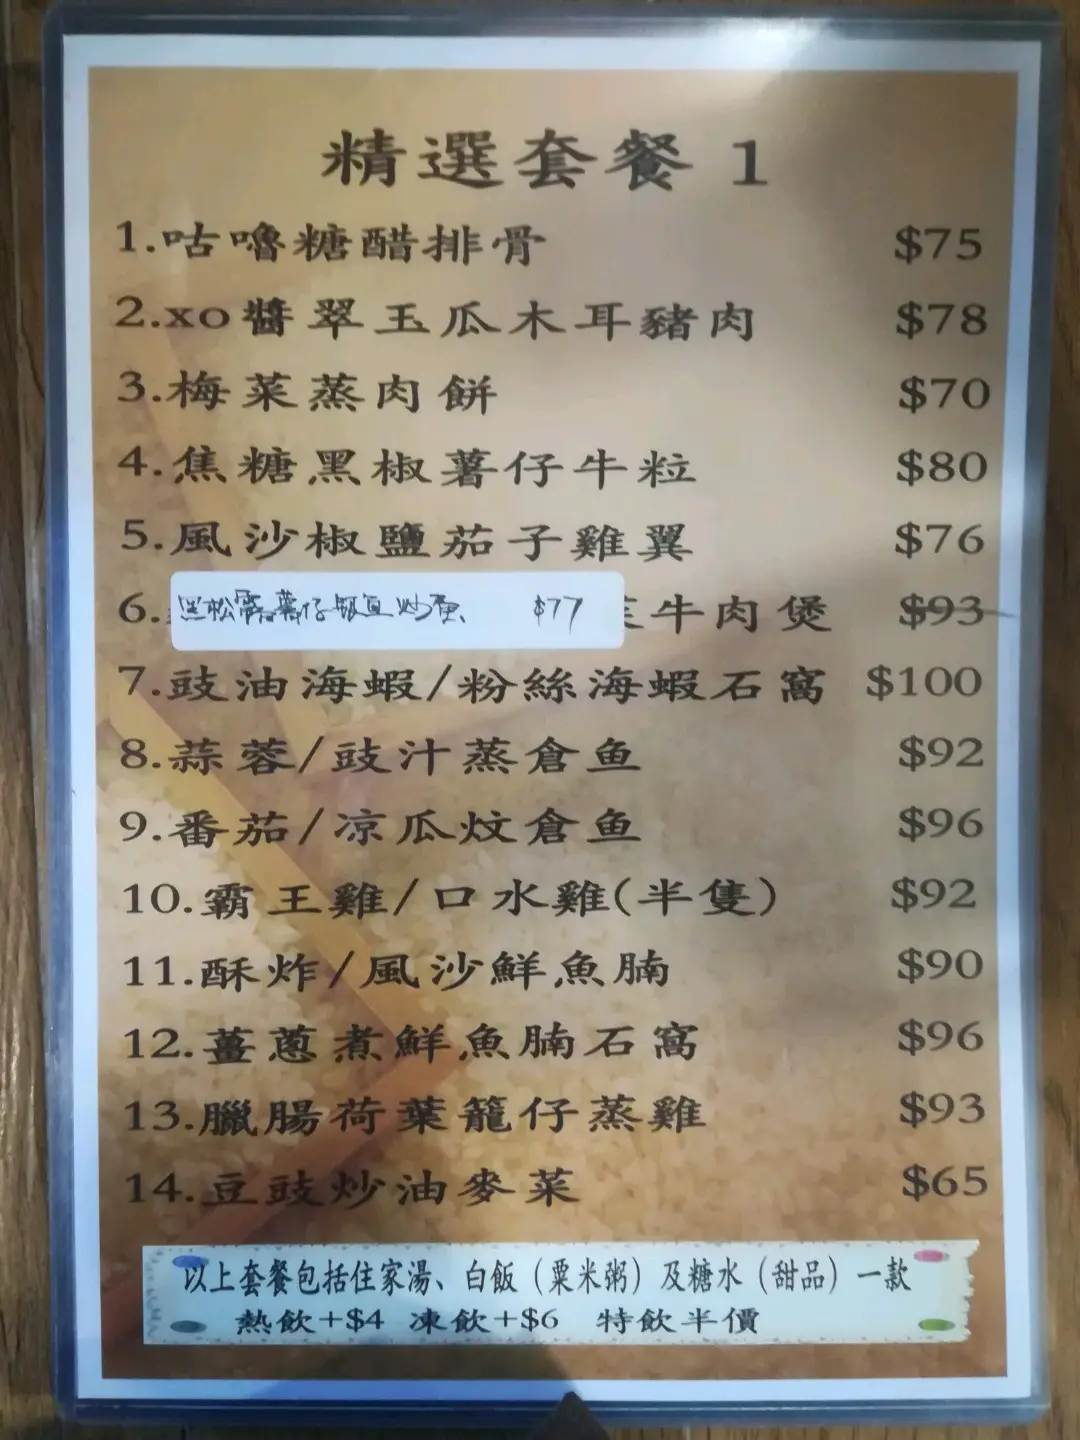 精選套餐 1
1.咕嚕糖醋排骨 $75
2.xo醬翠玉瓜木耳豬肉 $78
3.梅菜蒸肉餅 $70
4.焦糖黑椒薯仔牛粒 $80
5.風沙椒鹽茄子雞翼 $76
6.黑松露薯仔銀魚炒蛋 $77 牛肉煲 $93
7.豉油海蝦/粉絲海蝦石窩 $100
8.蒜蓉/豉汁蒸倉鱼 $92
9.番茄/凉瓜炆倉鱼 $96
10.霸王雞/口水雞(半隻) $92
11.酥炸/風沙鮮魚腩 $90
12.薑蔥煮鮮魚腩石窩 $96
13.臘腸荷葉籠仔蒸雞 $93
14.豆豉炒油麥菜 $65
以上套餐包括住家湯、白飯（粟米粥）及糖水（甜品）一款
熱飲+$4 凍飲+$6 特飲半價